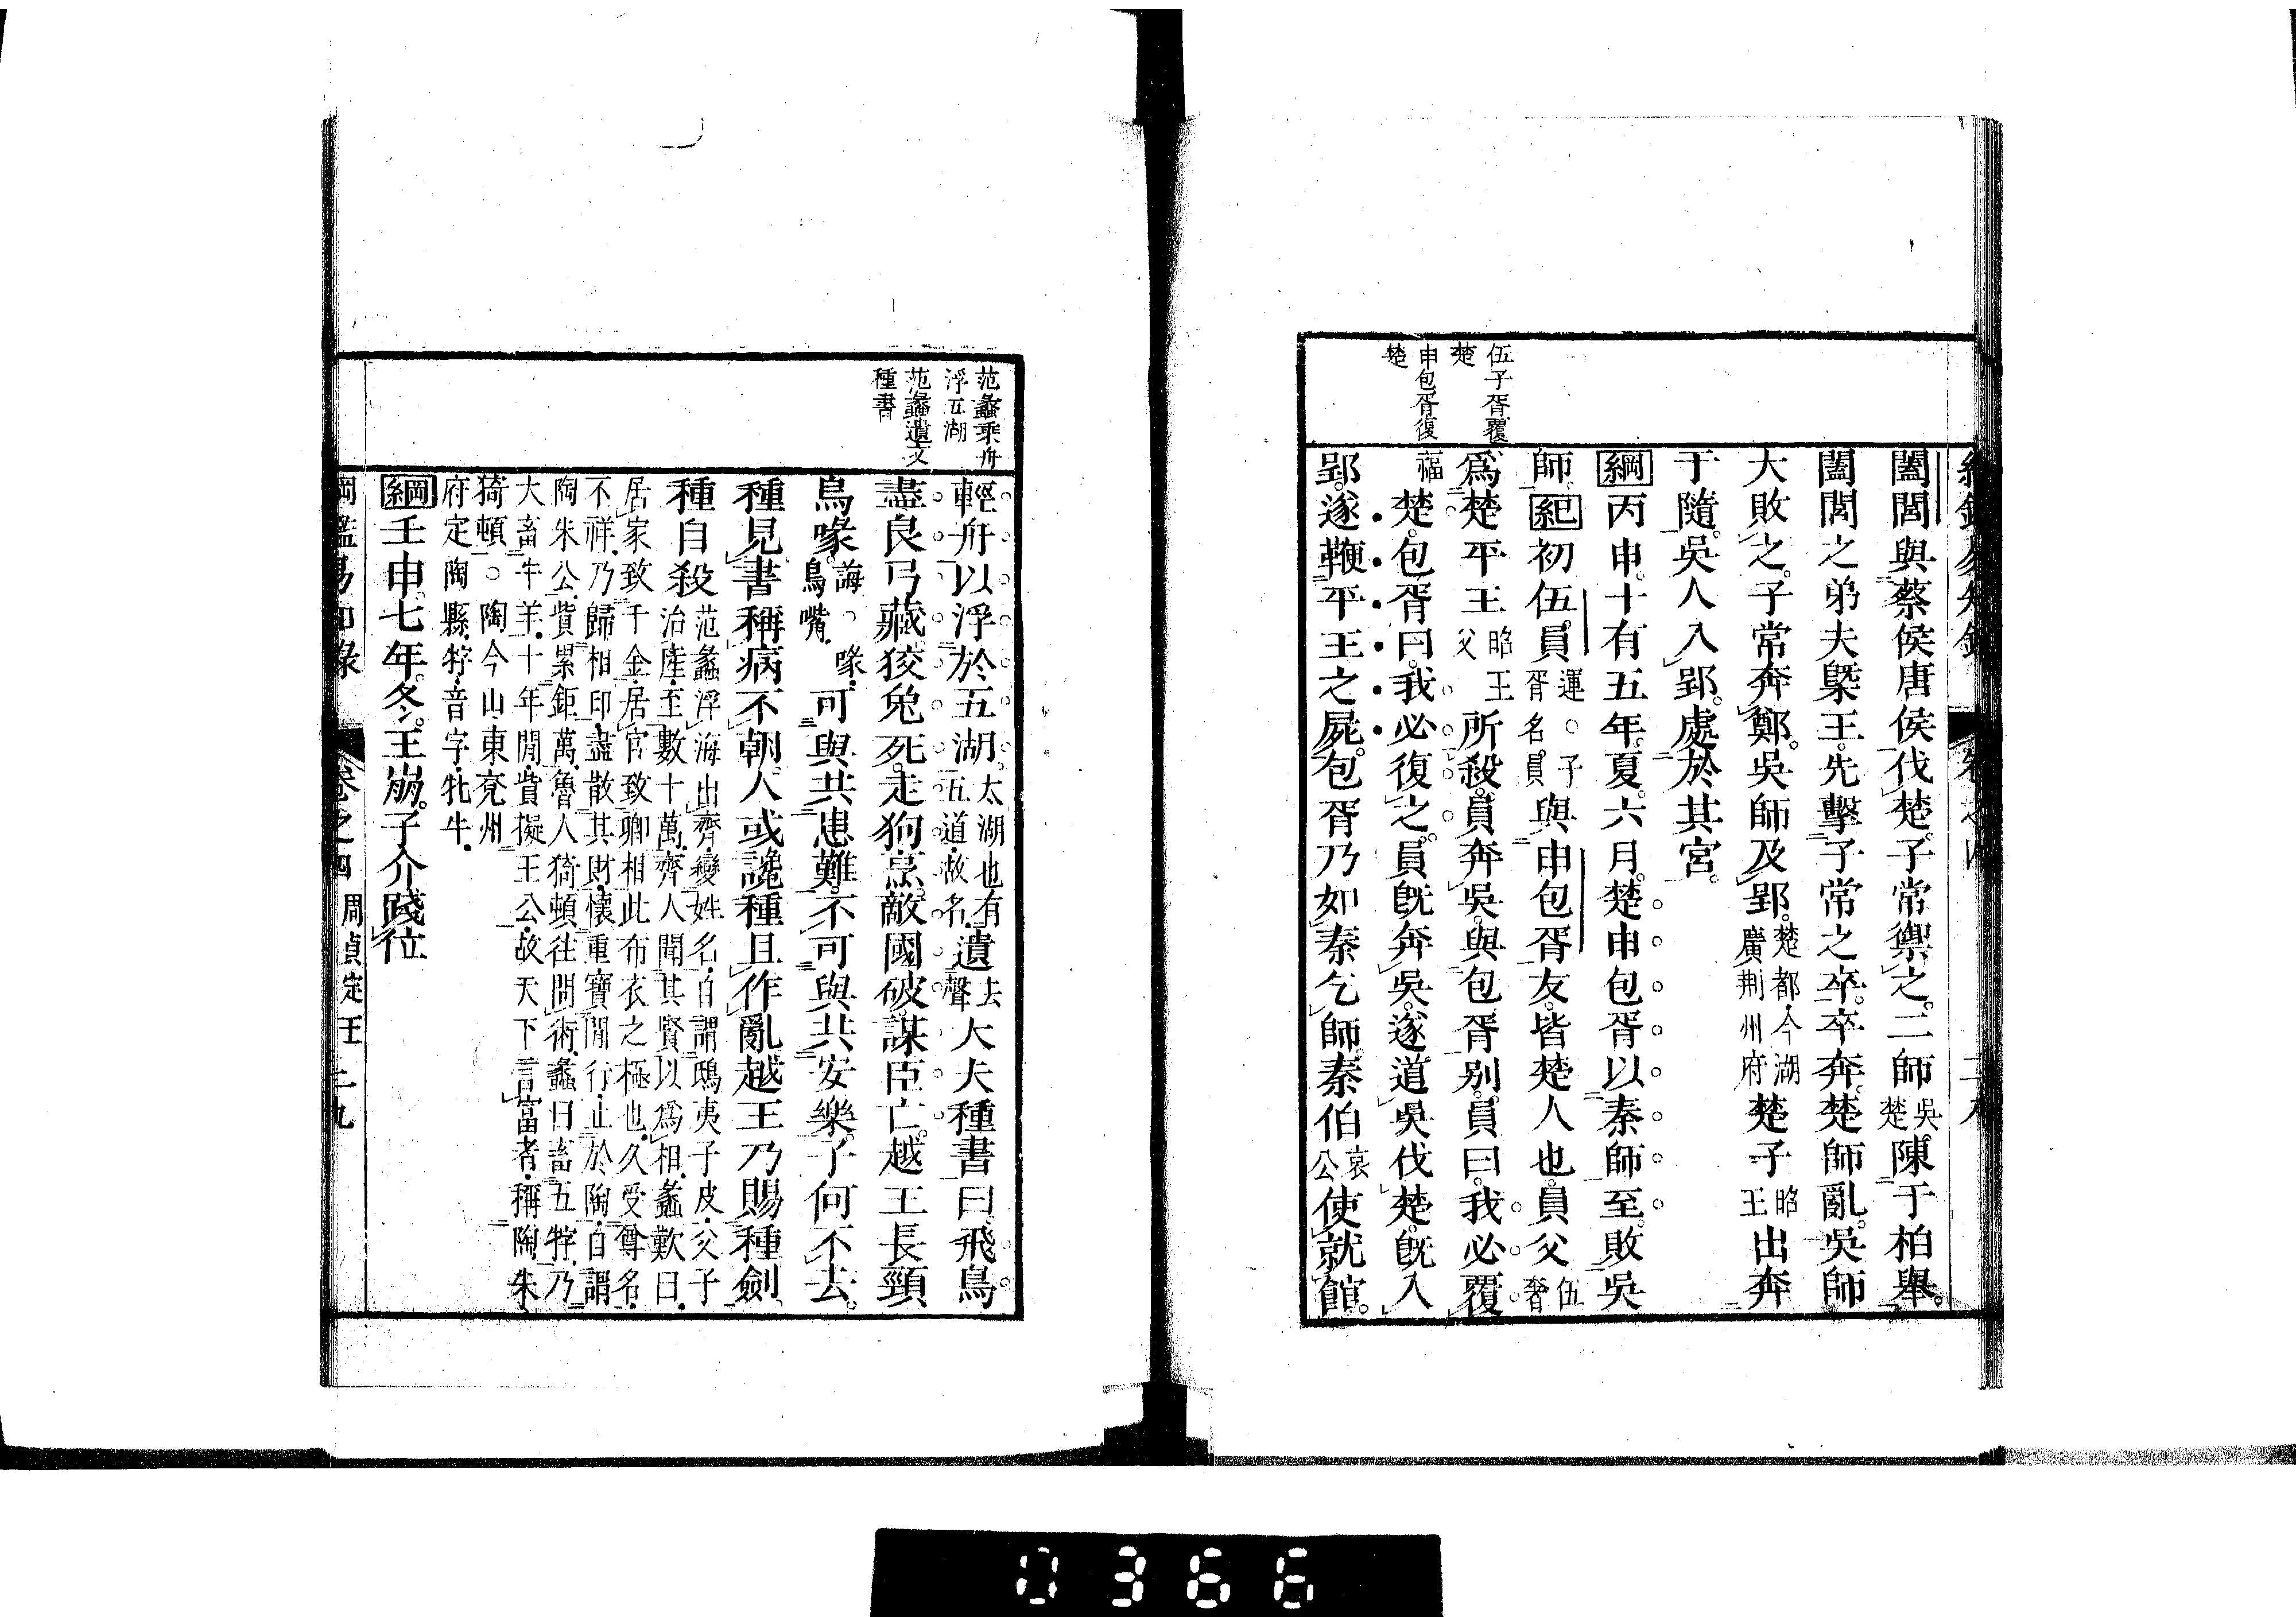 伍子胥覆
楚
申包胥復
楚
闔閭與蔡侯唐侯伐楚。子常禦之。二師吳楚。陳于柏舉。
闔閭之弟夫槩王。先擊子常之卒。卒奔。楚師亂。吳師
大敗之。子常奔鄭。吳師及郢。楚都今湖廣荆州府楚子昭王出奔
于隨。吳人入郢。處於其宮。
綱丙申。十有五年。夏。六月。楚申包胥以秦師至。敗吳
師。紀初伍員運。○子胥名。員與申包胥友。皆楚人也。員父伍奢
爲楚平王昭王父所殺。員奔吳。與包胥别。員曰。我必覆
福楚。包胥曰。我必復之。員旣奔吳。遂道吳伐楚。旣入
郢。遂鞭平王之屍。包胥乃如秦乞師。秦伯哀公使就館。
范蠡乘舟
浮五湖
范蠡遺文
種書
輕舟以浮於五湖。太湖也有五道。故名。遺去聲大夫種書曰。飛鳥
盡。良弓藏。狡兔死。走狗烹。敵國破。謀臣亡。越王長頸
鳥喙。誨。○喙。鳥嘴。可與共患難。不可與共安樂。子何不去。
種見書。稱病不朝。人或讒種且作亂。越王乃賜種劍。
種自殺范蠡浮海出齊。變姓名。自謂鴟夷子皮。父子
治產。至數十萬。齊人聞其賢。以爲相。蠡歎曰。
居家致千金。居官致卿相。此布衣之極也。久受尊名。
不祥。乃歸相印。盡散其財。懷重寶。閒行。止於陶。自謂
陶朱公。貲累鉅萬。魯人猗頓往問術。蠡曰。畜五牸。乃
大畜牛羊。十年閒。貲擬王公。故天下言富者。稱陶朱
猗頓。○陶今山東兗州
府定陶縣。牸。音字。牝牛。
綱壬申。七年。冬。王崩。子介踐位
綱鑑易知錄 卷之四 周貞定王 二九